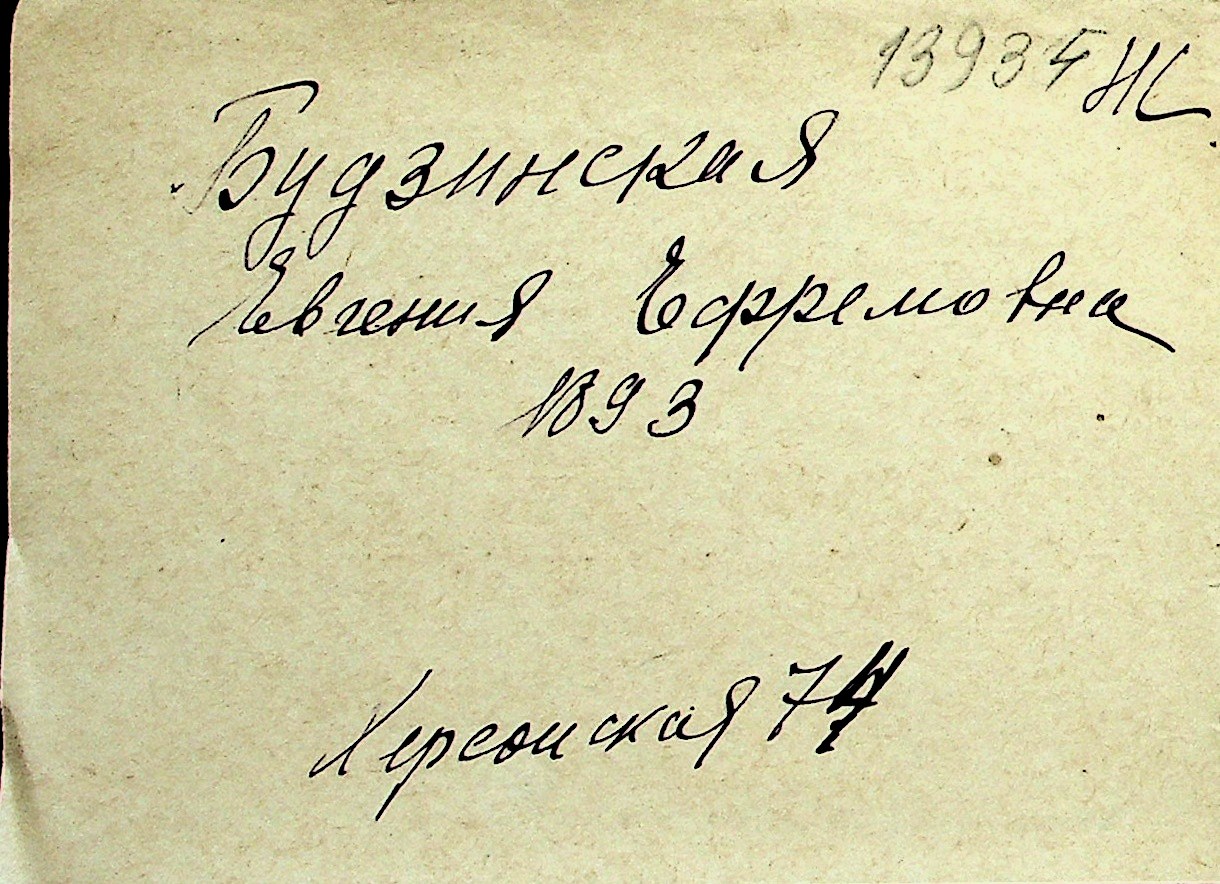 13935 НС
Будзинская
Евгения Ефремовна
1893
Херсонская 74